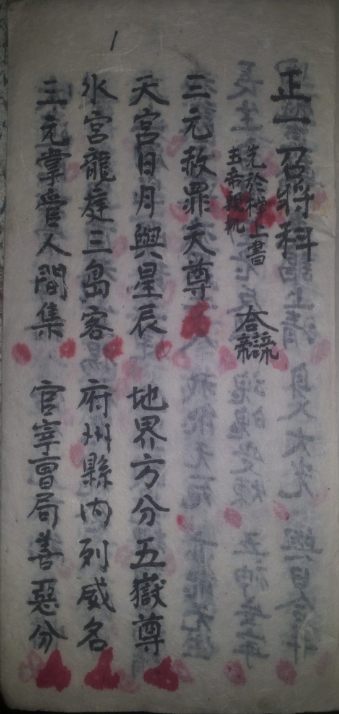 1
正一召將科
先於棹上書
三元赦罪天尊
天宮日月與星辰 地界方分五嶽尊
水宮龍庭三島客 府州縣内列威名
三元掌管人間集 官宰曹局善惡分